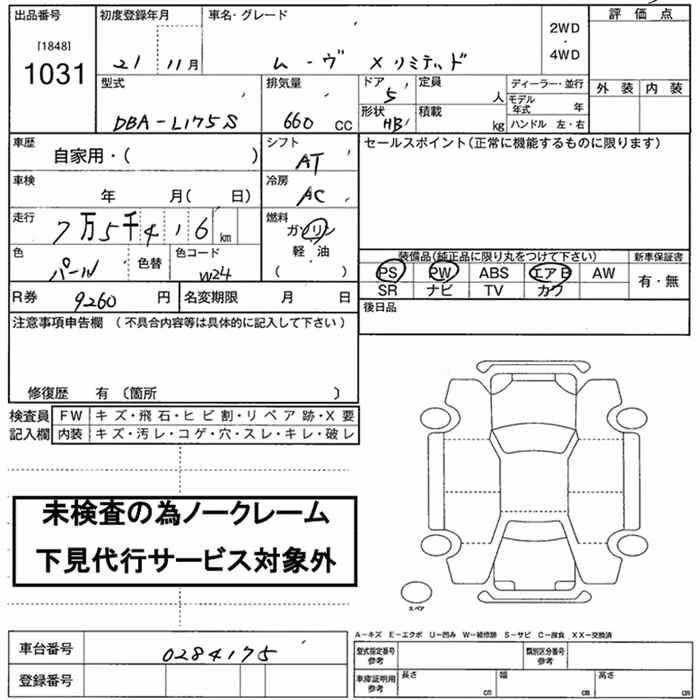 出品番号 初度登録年月 車名・グレード 2WD・4WD 評価点
[1848]
1031
21 11月 ムーヴ Xリミテッド
型式 排気量 ドア 定員 ディーラー・並行 外装 内装
DBA-L175S 660 CC 5 人 モデル年式 年
形状 HB 積載 kg ハンドル 左・右
車歴 自家用・( ) シフト AT セールスポイント(正常に機能するものに限ります)
車検 年 月( 日) 冷房 AC
走行 7万5千416 km 燃料 ガソリン
軽・油
( )
色 パール 色替 色コード W24
装備品(純正品に限り丸をつけて下さい) 新車保証書
PS PW ABS エアB AW 有・無
SR ナビ TV カワ
R券 9260 円 名変期限 月 日 後日品
注意事項申告欄 (不具合内容等は具体的に記入して下さい)
修復歴 有 〔箇所 〕
検査員 FW キズ・飛石・ヒビ割・リペア跡・X要
記入欄 内装 キズ・汚レ・コゲ・穴・スレ・キレ・破レ
未検査の為ノークレーム
下見代行サービス対象外
スペア
A-キズ E-エクボ U-凹み W-補修跡 S-サビ C-腐食 XX-交換済
車台番号 0284175 型式指定番号 参考 類別区分番号 参考
登録番号 車庫証明用 参考 長さ cm 幅 cm 高さ cm